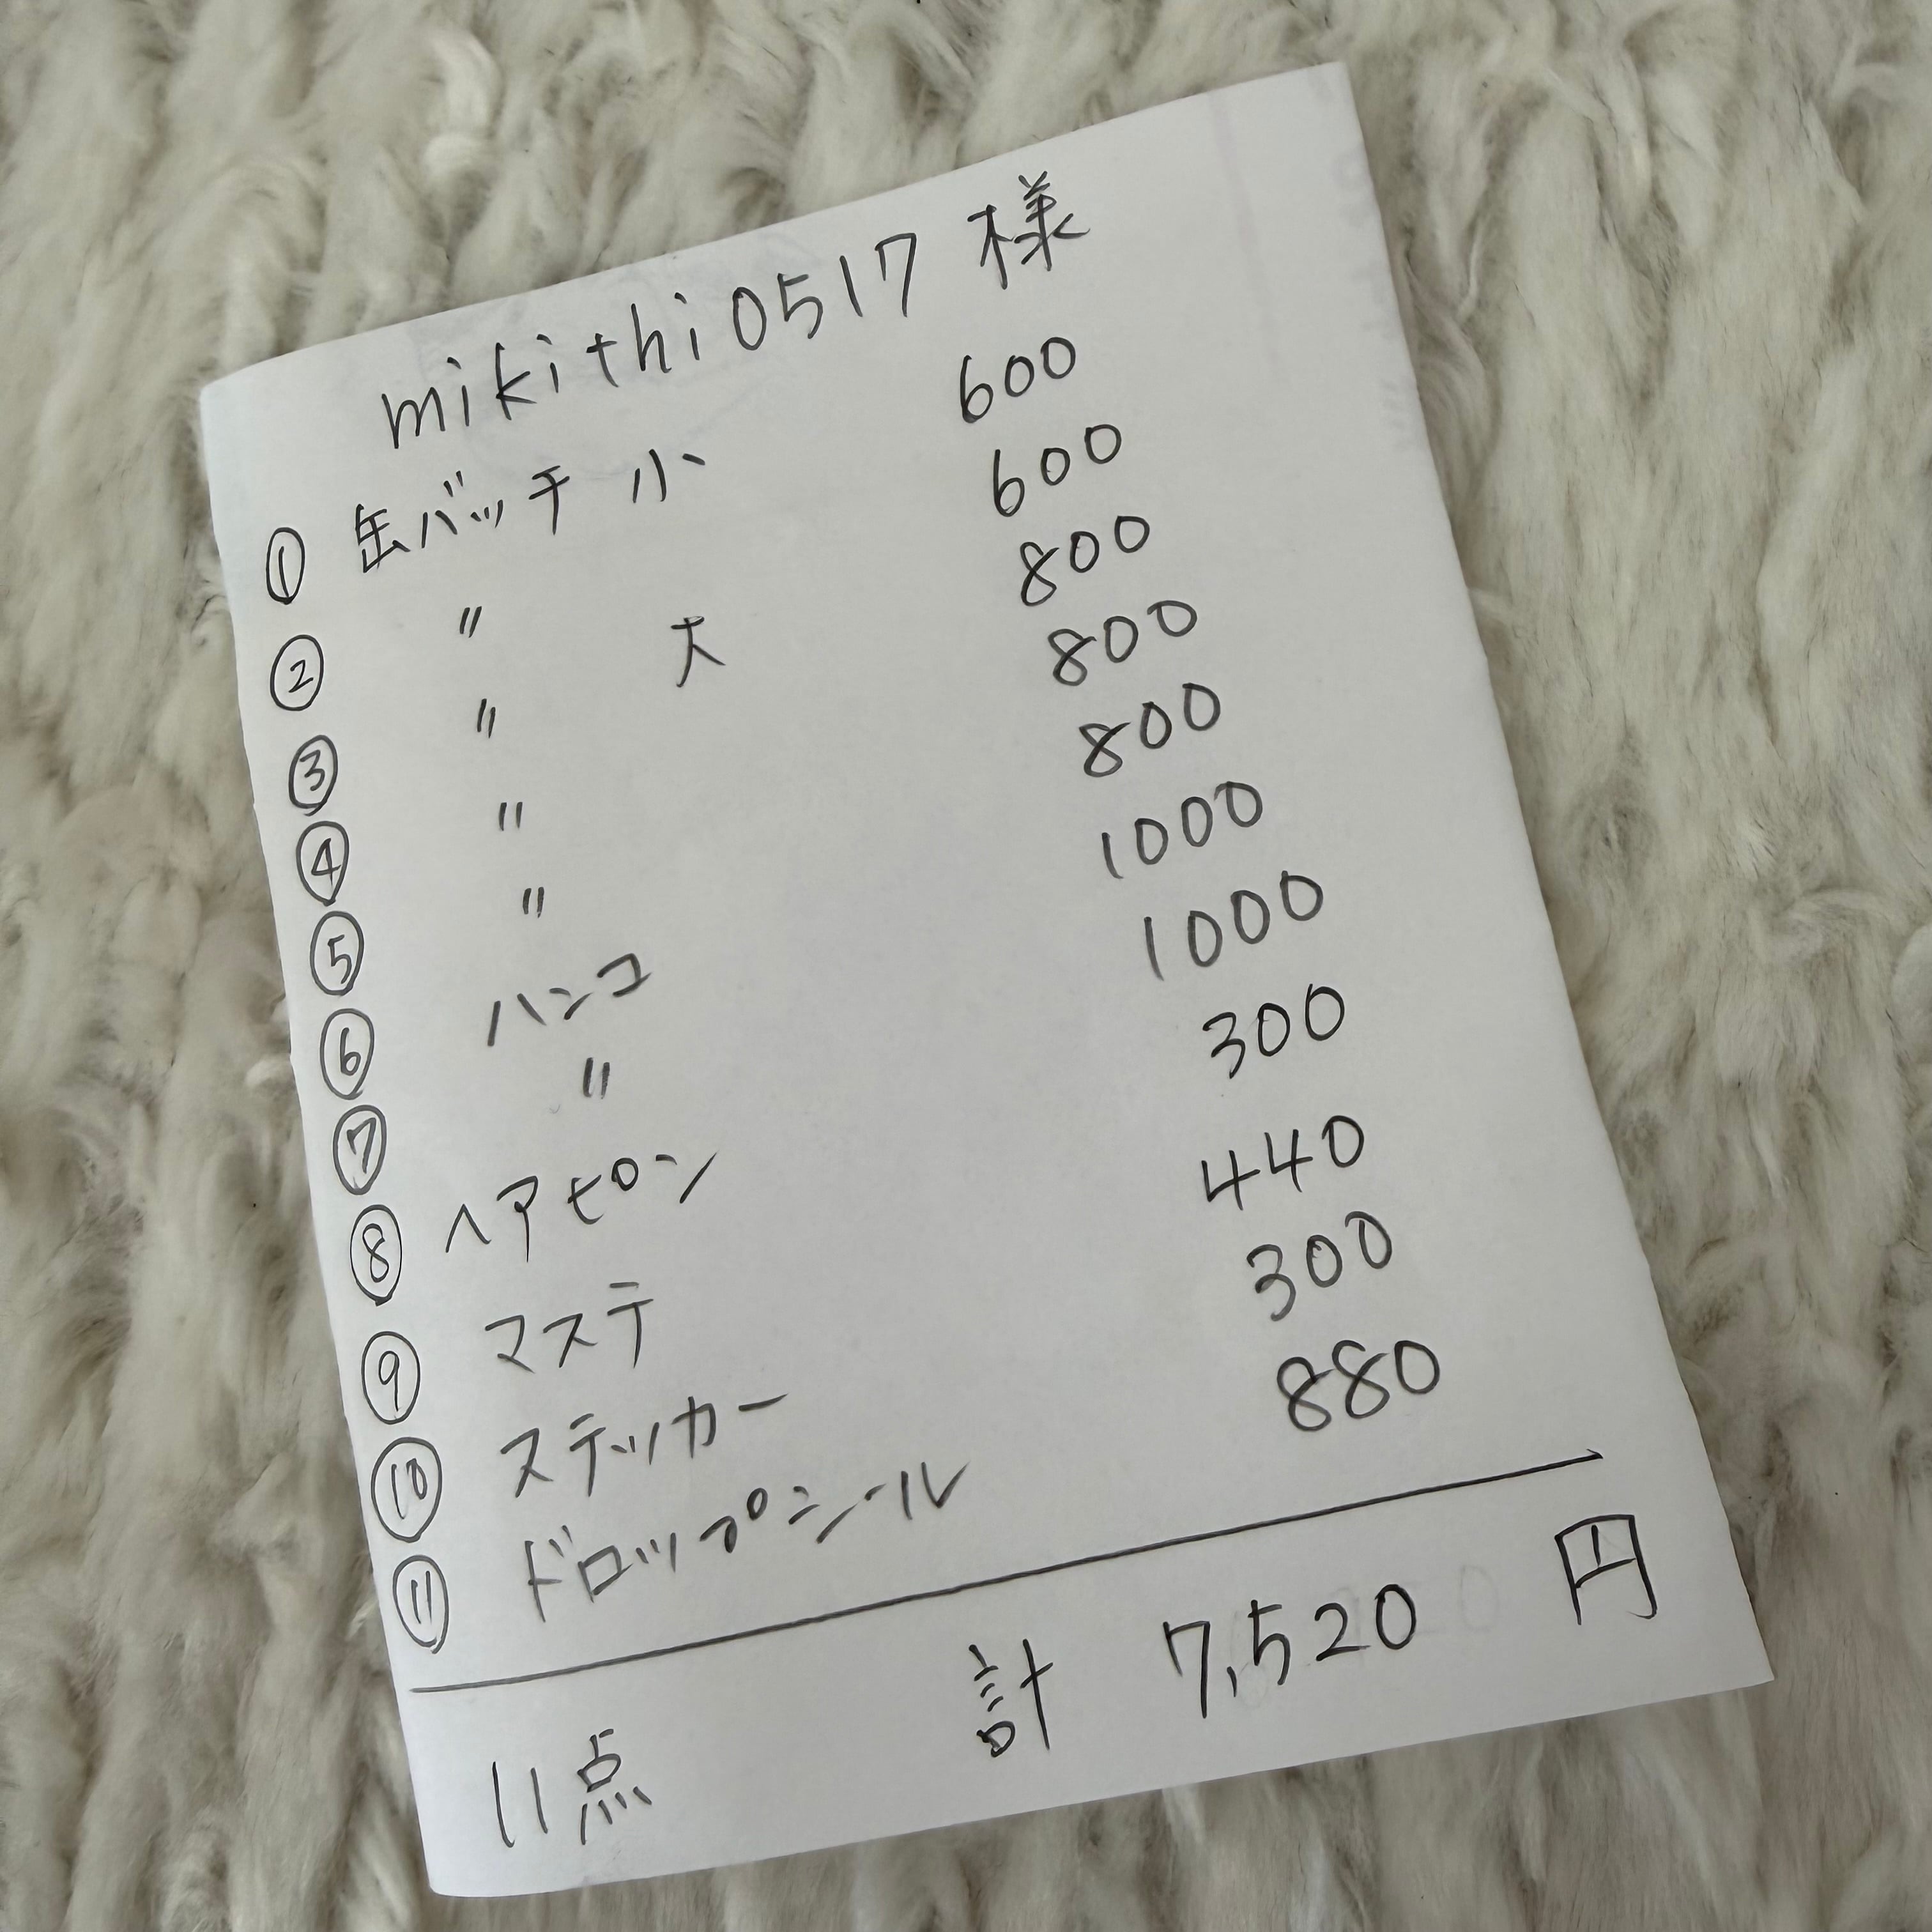 mikithi0517 様
① 缶バッチ 小 600
② 〃 600
③ 〃 大 800
④ 〃 800
⑤ 〃 800
⑥ ハンコ 1000
⑦ 〃 1000
⑧ ヘアピン 300
⑨ マステ 440
⑩ ステッカー 300
⑪ ドロップシール 880
11点 計 7,520 円